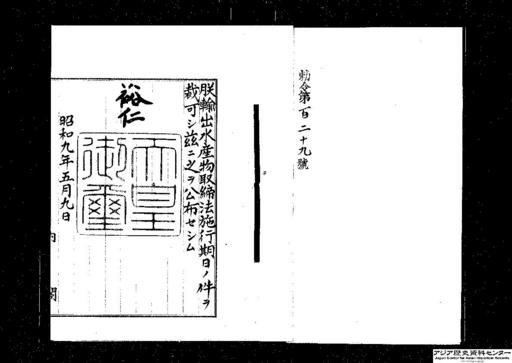 勅令第百二十九號
朕輸出水産物取締法施行期日ノ件ヲ
裁可シ玆ニ之ヲ公布セシム
裕仁
天皇御璽
昭和九年五月九日
内閣
アジア歴史資料センター
Japan Center for Asian Historical Records